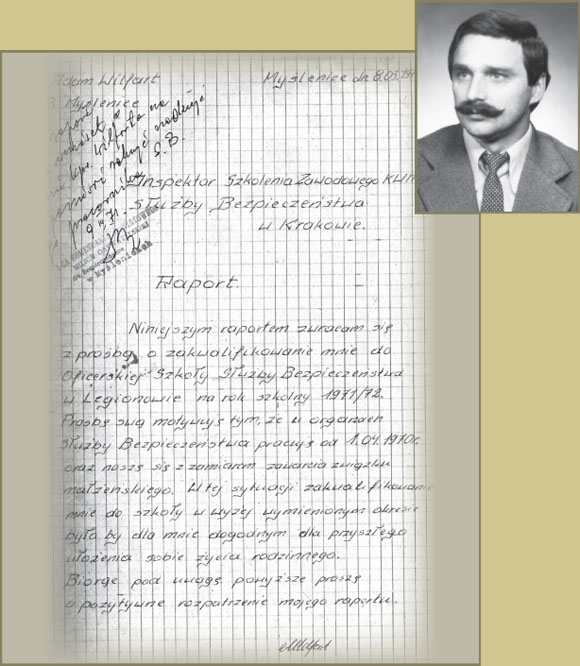 Adam Wilfart
Myślenice dn. 8.03.
Myślenice
S.B.
Inspektor Szkolenia Zawodowego KWM
Służby Bezpieczeństwa
w Krakowie.
Raport.
Niniejszym raportem zwracam się
z prośbą o zakwalifikowanie mnie do
Oficerskiej Szkoły Służby Bezpieczeństwa
w Legionowie na rok szkolny 1971/72.
Prośbę swą motywuję tym, że w organach
Służby Bezpieczeństwa pracuję od 1.04.1970r.
oraz noszę się z zamiarem zawarcia związku
małżeńskiego. W tej sytuacji zakwalifikowanie
mnie do szkoły w wyżej wymienionym okresie
było by dla mnie dogodnym dla przyszłego
ułożenia sobie życia rodzinnego.
Biorąc pod uwagę powyższe proszę
o pozytywne rozpatrzenie mojego raportu.
AWilfart